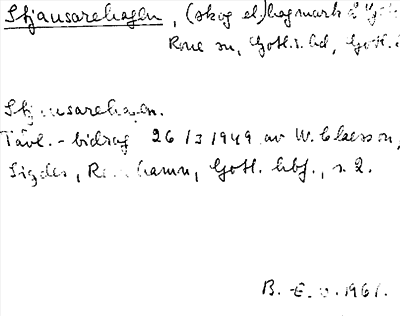 Stjausarehagen, (skog el.) hagmark å
Rone sn, Gotl. s. hd, Gotl.
Stjausarehagen.
Tävl.-bidrag 26/3 1949 av W. Claesson,
Sigdes, Ronehamn, Gotl. hbf., s. 2.
B. E. 1961.